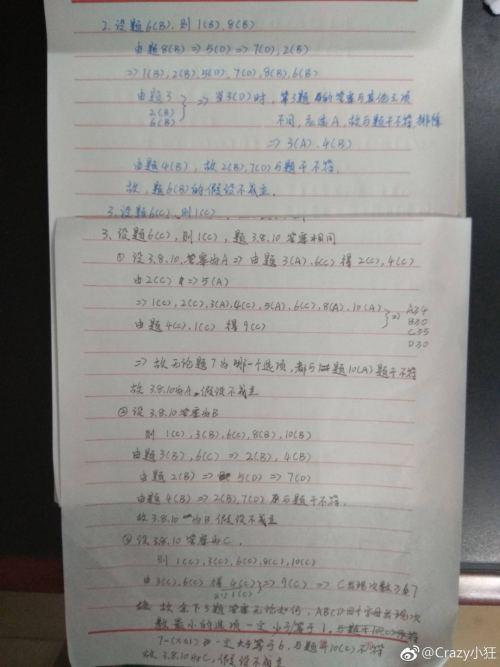 2. 设题6(B), 则1(B), 8(B)
由题8(B) => 5(D) => 7(D), 2(B)
=> 1(B), 2(B), 5(D), 7(D), 8(B), 6(B)
由题3
2(B)
6(B)
} => 当3(D)时, 第3题的答案与其他三项
不同, 应选A, 故与题干不符, 排除
=> 3(A), 4(B)
由题4(B), 故2(B), 7(D)与题干不符,
故, 题6(B)的假设不成立.
3. 设题6(C), 则1(C)
3. 设题6(C), 则1(C), 题3.8.10答案相同
① 设3.8.10答案为A => 由题3(A), 6(C) 得 2(C), 4(C)
由2(C) => 5(A)
=> 1(C), 2(C), 3(A), 4(C), 5(A), 6(C), 8(A), 10(A)
由题4(C), 1(C) 得 9(C)
} =>
A34
B30
C35
D30
=> 故无论题7为哪一个选项, 都与题10(A)题干不符
故3.8.10为A, 假设不成立
② 设3.8.10答案为B
则 1(C), 3(B), 6(C), 8(B), 10(B)
由题3(B), 6(C) => 2(B), 4(B)
由题2(B) => 5(D) => 7(D)
由题4(B) => 2(B), 7(D)与题干不符.
故3.8.10为B 假设不成立
③ 设3.8.10答案为C.
则 1(C), 3(C), 6(C), 8(C), 10(C)
由3(C), 6(C) 得 4(C) } => 9(C) => C出现次数≥67
故余下3题答案无论如何, ABCD四个字母出现次
数最小的选项一定小于等于1,
一定大于等于6, 与题10(C)不符
故3.8.10为C, 假设不成立
@Crazy小狂